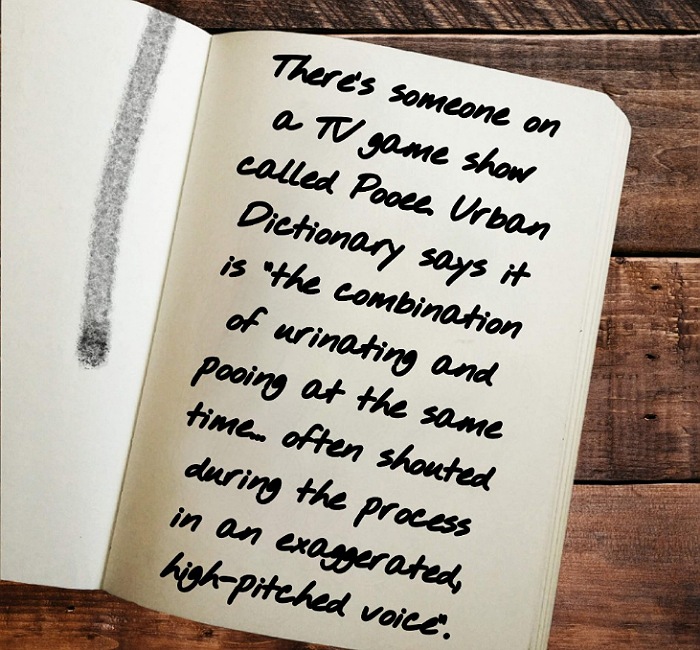 There's someone on
a TV game show
called Pooee. Urban
Dictionary says it
is "the combination
of urinating and
pooing at the same
time... often shouted
during the process
in an exaggerated,
high-pitched voice".